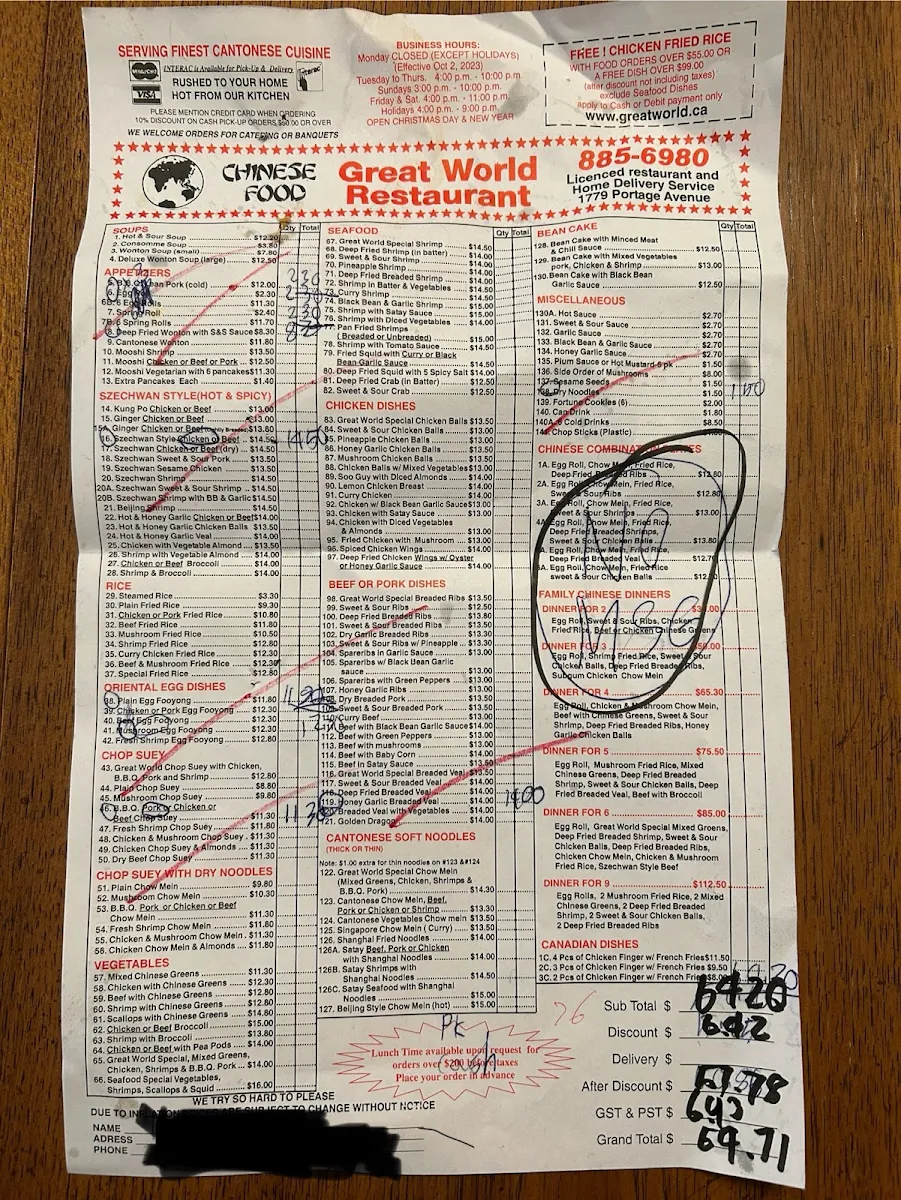 SERVING FINEST CANTONESE CUISINE
MasterCard
VISA
INTERAC is Available for Pick-Up & Delivery
Interac
RUSHED TO YOUR HOME
HOT FROM OUR KITCHEN
PLEASE MENTION CREDIT CARD WHEN ORDERING
10% DISCOUNT ON CASH PICK-UP ORDERS $50.00 OR OVER
WE WELCOME ORDERS FOR CATERING OR BANQUETS
BUSINESS HOURS:
Monday CLOSED (EXCEPT HOLIDAYS)
(Effective Oct 2, 2023)
Tuesday to Thurs. 4:00 p.m. - 10:00 p.m.
Sundays 3:00 p.m. - 10:00 p.m.
Friday & Sat. 4:00 p.m. - 11:00 p.m.
Holidays 4:00 p.m. - 9:00 p.m.
OPEN CHRISTMAS DAY & NEW YEAR
FREE ! CHICKEN FRIED RICE
WITH FOOD ORDERS OVER $55.00 OR
A FREE DISH OVER $99.00
(after discount not including taxes)
exclude Seafood Dishes
apply to Cash or Debit payment only
www.greatworld.ca
CHINESE FOOD
Great World
Restaurant
885-6980
Licenced restaurant and
Home Delivery Service
1779 Portage Avenue
SOUPS
Qty Total
1. Hot & Sour Soup $12.20
2. Consomme Soup $3.80
3. Wonton Soup (small) $7.80
4. Deluxe Wonton Soup (large) $12.50
APPETIZERS
Pork (cold) $12.00
$2.30
6B. 6 Egg Rolls $11.30
7. Spring Roll $2.40
7B. 6 Spring Rolls $11.70
8. Deep Fried Wonton with S&S Sauce $8.30
9. Cantonese Wonton $11.80
10. Mooshi Shrimp $13.50
11. Mooshi Chicken or Beef or Pork $12.50
12. Mooshi Vegetarian with 6 pancakes $11.30
13. Extra Pancakes Each $1.40
SZECHWAN STYLE(HOT & SPICY)
14. Kung Po Chicken or Beef $13.00
15. Ginger Chicken or Beef $13.00
Ginger Chicken or Beef $13.80
16. Szechwan Style Chicken or Beef $14.50 1450
17. Szechwan Chicken or Beef (dry) $14.50
18. Szechwan Sweet & Sour Pork $13.50
19. Szechwan Sesame Chicken $13.50
20. Szechwan Shrimp $14.50
20A. Szechwan Sweet & Sour Shrimp $14.50
20B. Szechwan Shrimp with BB & Garlic $14.50
21. Beijing Shrimp $14.50
22. Hot & Honey Garlic Chicken or Beef $14.00
23. Hot & Honey Garlic Chicken Balls $13.50
24. Hot & Honey Garlic Veal $14.00
25. Chicken with Vegetable Almond $13.50
26. Shrimp with Vegetable Almond $14.00
27. Chicken or Beef Broccoli $14.00
28. Shrimp & Broccoli $14.00
RICE
29. Steamed Rice $3.30
30. Plain Fried Rice $9.30
31. Chicken or Pork Fried Rice $10.80
32. Beef Fried Rice $11.80
33. Mushroom Fried Rice $10.50
34. Shrimp Fried Rice $12.80
35. Curry Chicken Fried Rice $12.30
36. Beef & Mushroom Fried Rice $12.30
37. Special Fried Rice $12.80
ORIENTAL EGG DISHES
38. Plain Egg Fooyong $11.80
39. Chicken or Pork Egg Fooyong $12.30
40. Beef Egg Fooyong $12.30
41. Mushroom Egg Fooyong $12.30
42. Fresh Shrimp Egg Fooyong $12.80
CHOP SUEY
43. Great World Chop Suey with Chicken,
B.B.Q. Pork and Shrimp $12.80
44. Plain Chop Suey $8.80
45. Mushroom Chop Suey $9.80
46. B.B.Q. Pork or Chicken or
Beef Chop Suey $11.30 1130
47. Fresh Shrimp Chop Suey $11.80
48. Chicken & Mushroom Chop Suey $11.30
49. Chicken Chop Suey & Almonds $11.30
50. Dry Beef Chop Suey $11.30
CHOP SUEY WITH DRY NOODLES
51. Plain Chow Mein $9.80
52. Mushroom Chow Mein $10.30
53. B.B.Q. Pork or Chicken or Beef
Chow Mein $11.30
54. Fresh Shrimp Chow Mein $11.80
55. Chicken & Mushroom Chow Mein $11.30
56. Chicken Chow Mein & Almonds $11.80
VEGETABLES
57. Mixed Chinese Greens $11.30
58. Chicken with Chinese Greens $12.30
59. Beef with Chinese Greens $12.80
60. Shrimp with Chinese Greens $12.80
61. Scallops with Chinese Greens $14.80
62. Chicken or Beef Broccoli $15.00
63. Shrimp with Broccoli $13.80
64. Chicken or Beef with Pea Pods $14.00
65. Great World Special, Mixed Greens,
Chicken, Shrimps & B.B.Q. Pork $14.00
66. Seafood Special Vegetables,
Shrimps, Scallops & Squid $16.00
SEAFOOD
Qty Total
67. Great World Special Shrimp $14.50
68. Deep Fried Shrimp (in batter) $14.00
69. Sweet & Sour Shrimp $14.00
70. Pineapple Shrimp $14.00
71. Deep Fried Breaded Shrimp $14.00
72. Shrimp in Batter & Vegetables $14.50
73. Curry Shrimp $14.00
74. Black Bean & Garlic Shrimp $15.00
75. Shrimp with Satay Sauce $15.00
76. Shrimp with Diced Vegetables $14.00
Pan Fried Shrimps
(Breaded or Unbreaded) $15.00
78. Shrimp with Tomato Sauce $14.50
79. Fried Squid with Curry or Black
Bean Garlic Sauce $14.00
80. Deep Fried Squid with 5 Spicy Salt $14.00
81. Deep Fried Crab (in Batter) $12.50
82. Sweet & Sour Crab $12.50
CHICKEN DISHES
83. Great World Special Chicken Balls $13.50
84. Sweet & Sour Chicken Balls $13.00
85. Pineapple Chicken Balls $13.00
86. Honey Garlic Chicken Balls $13.00
87. Mushroom Chicken Balls $13.00
88. Chicken Balls w/ Mixed Vegetables $13.00
89. Soo Guy with Diced Almonds $14.00
90. Lemon Chicken Breast $14.00
91. Curry Chicken $14.00
92. Chicken w/ Black Bean Garlic Sauce $13.00
93. Chicken with Satay Sauce $14.00
94. Chicken with Diced Vegetables
& Almonds $13.00
95. Fried Chicken with Mushroom $13.00
96. Spiced Chicken Wings $14.00
97. Deep Fried Chicken Wings w/ Oyster
or Honey Garlic Sauce $14.00
BEEF OR PORK DISHES
98. Great World Special Breaded Ribs $13.50
99. Sweet & Sour Ribs $12.50
100. Deep Fried Breaded Ribs $12.80
101. Sweet & Sour Breaded Ribs $13.30
102. Dry Garlic Breaded Ribs $13.30
103. Sweet & Sour Ribs w/ Pineapple $13.30
104. Spareribs in Garlic Sauce $13.00
105. Spareribs w/ Black Bean Garlic
sauce $13.00
106. Spareribs with Green Peppers $13.00
107. Honey Garlic Ribs $13.00
108. Dry Breaded Pork $13.50
109. Sweet & Sour Breaded Pork $13.50
110. Curry Beef $13.00
111. Beef with Black Bean Garlic Sauce $14.00
112. Beef with Green Peppers $13.00
113. Beef with mushrooms $13.00
114. Beef with Baby Corn $14.00
115. Beef in Satay Sauce $13.50
116. Great World Special Breaded Veal $13.50
117. Sweet & Sour Breaded Veal $14.00
118. Deep Fried Breaded Veal $14.00
119. Honey Garlic Breaded Veal $14.00 1400
120. Breaded Veal with Vegetables $14.00
121. Golden Dragon $14.00
CANTONESE SOFT NOODLES
(THICK OR THIN)
Note: $1.00 extra for thin noodles on #123 &#124
122. Great World Special Chow Mein
(Mixed Greens, Chicken, Shrimps &
B.B.Q. Pork) $14.30
123. Cantonese Chow Mein, Beef,
Pork or Chicken or Shrimp $13.30
124. Cantonese Vegetables Chow mein $13.50
125. Singapore Chow Mein ( Curry) $13.50
126. Shanghai Fried Noodles $14.00
126A. Satay Beef, Pork or Chicken
with Shanghai Noodles $14.00
126B. Satay Shrimps with
Shanghai Noodles $14.50
126C. Satay Seafood with Shanghai
Noodles $15.00
127. Beijing Style Chow Mein (hot) $15.00
BEAN CAKE
Qty Total
128. Bean Cake with Minced Meat
& Chili Sauce $12.50
129. Bean Cake with Mixed Vegetables
pork, Chicken & Shrimp $13.00
130. Bean Cake with Black Bean
Garlic Sauce $12.50
MISCELLANEOUS
130A. Hot Sauce $2.70
131. Sweet & Sour Sauce $2.70
132. Garlic Sauce $2.70
133. Black Bean & Garlic $2.70
134. Honey Garlic Sauce $2.70
135. Plum Sauce or Hot Mustard 5 pk $1.50
136. Side Order of Mushrooms $8.00
137. Sesame Seeds $1.50
138. Dry Noodles $1.50
139. Fortune Cookies (6) $2.00
140. Can Drink $1.80
140A. 6 Cold Drinks $8.50
141. Chop Sticks (Plastic)
CHINESE COMBINATION PLATES
1A. Egg Roll, Chow Mein, Fried Rice,
Deep Fried Breaded Ribs $13.80
2A. Egg Roll, Chow Mein, Fried Rice,
Sweet & Sour Ribs $12.80
3A. Egg Roll, Chow Mein, Fried Rice,
Sweet & Sour Shrimps $13.00
4A. Egg Roll, Chow Mein, Fried Rice,
Deep Fried Breaded Shrimps,
Sweet & Sour Chicken Balls $13.80
Egg Roll, Chow Mein, Fried Rice,
Deep Fried Breaded Veal
Egg Roll, Chow Mein, Fried Rice
sweet & Sour Chicken Balls
NO
MSG
FAMILY CHINESE DINNERS
DINNER FOR 2
Egg Roll, Sweet & Sour Ribs, Chicken
Fried Rice, Beef or Chicken Chinese Greens
DINNER FOR 3
Egg Roll, Shrimp Fried Rice, Sweet & Sour
Chicken Balls, Deep Fried Breaded Ribs,
Subgum Chicken Chow Mein
DINNER FOR 4 $65.30
Egg Roll, Chicken & Mushroom Chow Mein,
Beef with Chinese Greens, Sweet & Sour
Shrimp, Deep Fried Breaded Ribs, Honey
Garlic Chicken Balls
DINNER FOR 5 $75.50
Egg Roll, Mushroom Fried Rice, Mixed
Chinese Greens, Deep Fried Breaded
Shrimp, Sweet & Sour Chicken Balls,
Deep Fried Breaded Veal, Beef with Broccoli
DINNER FOR 6 $85.00
Egg Roll, Great World Special Mixed Greens,
Deep Fried Breaded Shrimp, Sweet & Sour
Chicken Balls, Deep Fried Breaded Ribs,
Chicken Chow Mein, Chicken & Mushroom
Fried Rice, Szechwan Style Beef
DINNER FOR 9 $112.50
Egg Rolls, 2 Mushroom Fried Rice, 2 Mixed
Chinese Greens, 2 Deep Fried Breaded
Shrimp, 2 Sweet & Sour Chicken Balls,
2 Deep Fried Breaded Ribs
CANADIAN DISHES
1C. 4 Pcs of Chicken Finger w/ French Fries $11.50
2C. 3 Pcs of Chicken Finger w/ French Fries $9.50
2C. 2 Pcs of Chicken Finger w/ French Fries $8.00
76
PK
cash
Lunch Time available upon request for
orders over $200 before taxes
Place your order in advance
Sub Total $ 6420
Discount $ 642
Delivery $
After Discount $ 5778
GST & PST $ 693
Grand Total $ 64.71
WE TRY SO HARD TO PLEASE
DUE TO INFLATION ARE SUBJECT TO CHANGE WITHOUT NOTICT
NAME
ADRESS
PHONE